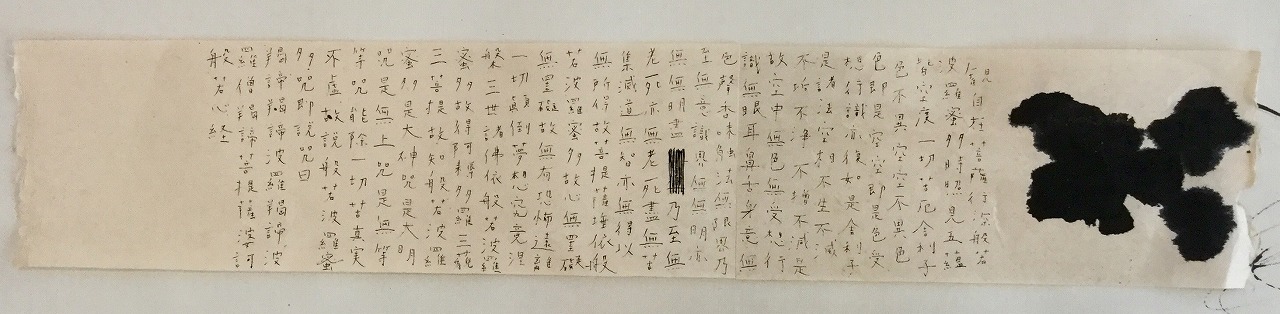 観自在菩薩行深般若
波羅蜜多時照見五蘊
皆空度一切苦厄舎利子
色不異空空不異色
色即是空空即是色受
想行識亦復如是舎利子
是諸法空相不生不滅
不垢不浄不増不減是
故空中無色無受想行
識無眼耳鼻舌身意無
色聲香味触法無眼界乃
至無意識界無無明亦
無無明盡乃至無
老死亦無老死盡無苦
集滅道無智亦無得以
無所得故菩提薩埵依般
若波羅蜜多故心無罣礙
無罣礙故無有恐怖遠離
一切顛倒夢想究竟涅
槃三世諸佛依般若波羅
蜜多故得阿耨多羅三藐
三菩提故知般若波羅
蜜多是大神咒是大明
咒是無上咒是無等
等咒能除一切苦真実
不虚故説般若波羅蜜
多咒即説咒曰
羯諦羯諦波羅羯諦波
羅僧羯諦菩提薩婆訶
般若心経